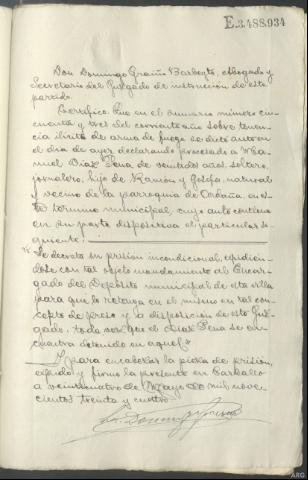 E.3.488.934
Don Domingo Graiño Barbeyto, Abogado y
Secretario del Juzgado de instrucción de este
partido.
Certifico: Que en el sumario número cin-
cuenta y tres del corriente año sobre tenen-
cia ilícita de arma de fuego se dictó auto en
el día de ayer declarando procesado a Ma-
nuel Díaz Pena de veintidos años, soltero,
jornalero, hijo de Ramón y Josefa, natural
y vecino de la parroquia de en es-
te término municipal, cuyo auto contiene
en su parte dispositiva el particular si-
guiente:
"Se decreta su prisión incondicional, expidién-
dose con tal objeto mandamiento al Encar-
gado del Depósito municipal de esta villa
para que lo retenga en el mismo en tal con-
cepto de preso y a disposición de este Juz-
gado, toda vez que el Díaz Pena se en-
cuentra detenido en aquel"
Y para encabezar la pieza de prisión,
expido y firmo la presente en Carballo
a veinticuatro de Mayo de mil nove-
cientos treinta y cuatro.
ARG